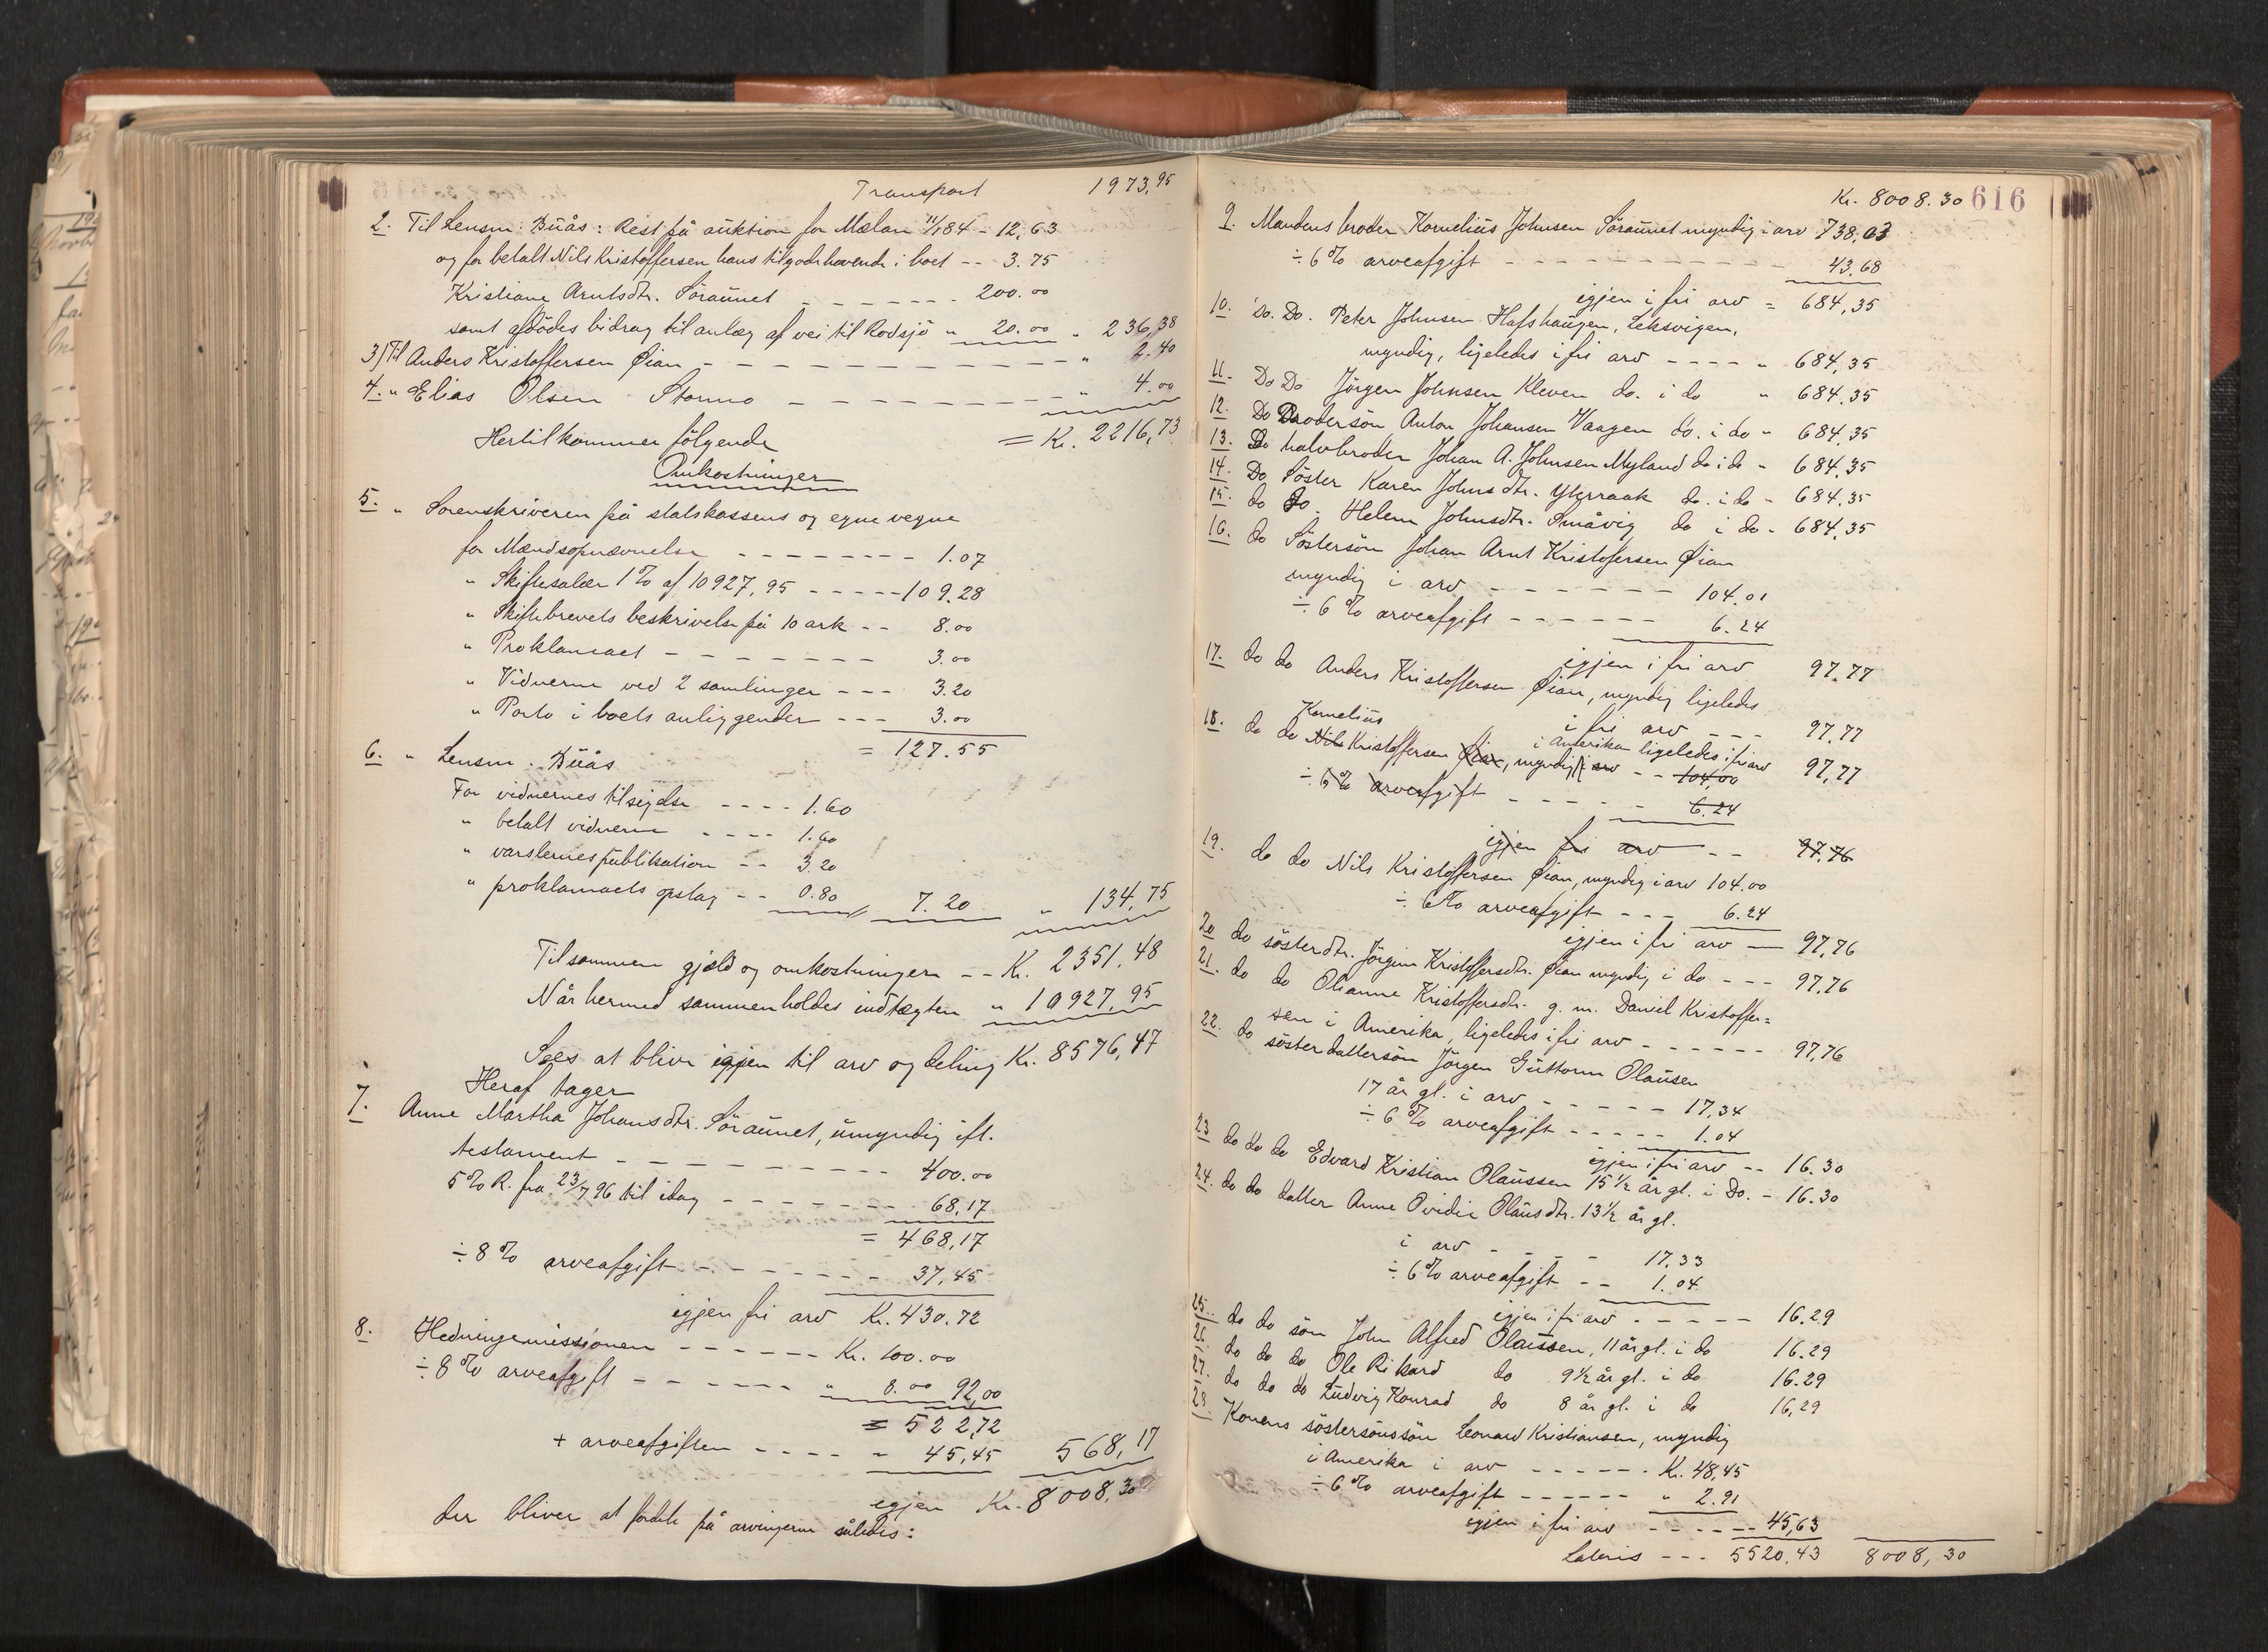 Transport 1973,95
2. Til Lensm. Büås: Rest på auktion for Mælan 11/184 - 12,63
og for betalt Nils Kristoffersen hans tilgodehavende i boet -- 3.75
Kristiane Arntsdtr. Söraunet - - - - - - - 200.00
samt afdödes bidrag til anlæg af vei til Rodsjö " 20.00 " 236,38
3) Til Anders Kristoffersen Øian - - - - - - - - - - " 2.40
4. " Elias Olsen Stormo - - - - - - - - - " 4.00
Hertilkommer følgende = Kr. 2216,73
Omkostninger
5. " Sorenskriveren på statskassens og egne vegne
for Mændsopnævnelse - - - - - - - - 1.07
" Skiftesalær 1% af 10927,95 - - - - - 109.28
" Skiftebrevets beskrivelse på 10 ark - - 8.00
" Proklamaet - - - - - - - 3.00
" Vidnerne ved 2 samlinger - - - 3.20
" Porto i boets anliggender - - - 3.00
= 127.55
6. " Lensm. Büås
For vidnernes tilsigelse - - - - 1.60
" betalt vidnerne - - - - 1.60
" varslernes publikation - - 3.20
" proklamaets opslag - - 0.80 7.20 " 134,75
Tilsammen gjæld og omkostninger - - Kr. 2351.48
Når hermed sammenholdes indtægten " 10927,95
Sees at blive igjen til arv og deling Kr. 8576,47
Heraf tager
7. Anne Martha Johansdtr. Söraunet, umyndig ifl.
testament - - - - - - - - - 400.00
5% R. fra 23/7 96 til idag - - - - - - - 68,17
= 468,17
÷ 8% arveafgift - - - - - - - 37,45
igjen fri arv Kr. 430.72
8. Hedningemissionen - - - - - - Kr. 100.00
÷ 8% arveafgift - - - - - - " 8.00 92,00
= 522,72
+ arveafgiften - - - - " 45,45 568,17
igjen Kr. 8008,30
der bliver at fordele på arvingerne således:
Kr. 8008.30 616
9. Mandens broder Kornelius Johnsen Söraunet myndig i arv 738.03
÷ 6% arveafgift - - - - - - - - - - - 43.68
igjen i fri arv = 684,35
10. Do. Do. Peter Johnsen Hafshaugen, Leksvigen,
myndig, ligeledes i fri arv - - - - " 684,35
11. Do Do Jörgen Johnsen Kleven do. i do " 684.35
12. Do Brodersön Anton Johansen Vaagen do. i do " 684.35
13. Do halvbroder Johan A. Johnsen Myland do i do " 684.35
14. Do Söster Karen Johnsdtr. Ytterraak do. i do " 684.35
15. do do. Helene Johnsdtr. Småvig do i do - 684.35
16. do Söstersön Johan Arnt Kristoffersen Øian
myndig i arv - - - - - - - 104.01
÷ 6% arveafgift - - - - - - 6.24
igjen i fri arv 97.77
17. do do Anders Kristoffersen Øian, myndig ligeledes
i fri arv - - - 97,77
Kornelius i Amerika ligeledes i fri arv
18. do do Nils Kristoffersen Øian, myndig i arv - - 104,00 97,77
÷ 6% arveafgift - - - - - - 6.24
igjen fri arv - - 97,76
19. do do Nils Kristoffersen Øian, myndig i arv 104.00
÷ 6% arveafgift - - - 6.24
igjen i fri arv — 97,76
20 do sösterdtr. Jörgine Kristoffersdtr. Øian myndig i do - - - 97.76
21. do do Olianne Kristoffersdtr. g. m. Daniel Kristoffer=
sen i Amerika, ligeledes i fri arv - - - - - - 97.76
22. do sösterdattersön Jörgen Guttorm Olaüsen
17 år gl. i arv - - - - - 17,34
÷ 6% arveafgift - - - - - 1.04
igjen i fri arv -- 16.30
23 do do do Edvard Kristian Olaüssen 15½ år gl. i Do. - 16.30
24. do do datter Anne Ovidie Olaüsdtr. 13½ år gl.
i arv - - - - 17,33
÷ 6% arveafgift - - 1.04
igjen i fri arv - - - - - 16.29
25. do do sön John Alfred Olaüssen, 11 år gl. i do 16.29
26. do do do Ole Rikard do 9½ år gl. i do 16.29
27. do do do Ludvig Konrad do 8 år gl. i do 16,29
28. Konens söstersönssön Leonard Kristiansen, myndig
i Amerika i arv - - - - - - Kr. 48,45
÷ 6% arveafgift - - - - - - " 2.91
igjen i fri arv - - - - - - 45,63
Lateris - - - 5520,43 8008,30